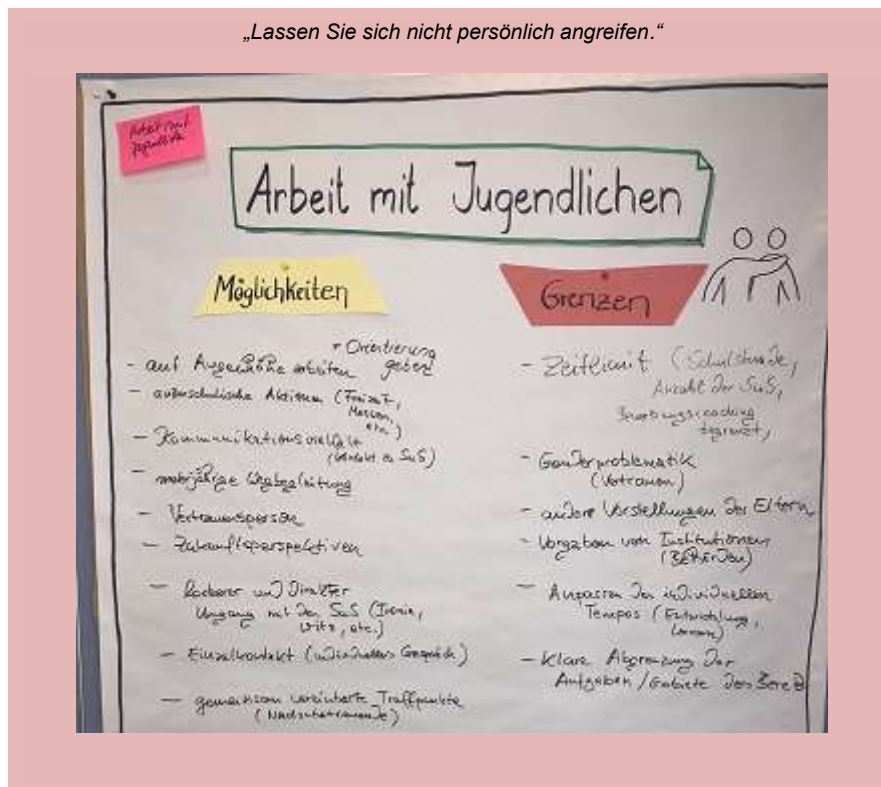 „Lassen Sie sich nicht persönlich angreifen.“
Arbeit mit
Jugendlichen
Arbeit mit Jugendlichen
Möglichkeiten
+ Orientierung
geben
- auf Augenhöhe arbeiten
- außerschulische Aktionen (Freizeit,
Messen,
etc.)
- Kommunikationsvielfalt
(Kontakt zu SuS)
- mehrjährige Wegbegleitung
- Vertrauensperson
- Zukunftsperspektiven
- lockerer und direkter
Umgang mit den SuS (Ironie,
Witz, etc.)
- Einzelkontakt (individuelles Gespräch)
- gemeinsam vereinbarte Treffpunkte
Grenzen
- Zeitlimit (Schulstunde,
Anzahl der SuS,
Bewerbungscoaching
begrenzt,
- Genderproblematik
(Vertrauen)
- andere Vorstellungen der Eltern
- Vorgaben von Institutionen
(Behörden)
- Anpassen des individuellen
Tempos (Entwicklung,
Lernen)
- Klare Abgrenzung der
Aufgaben/Gebiete des BereB